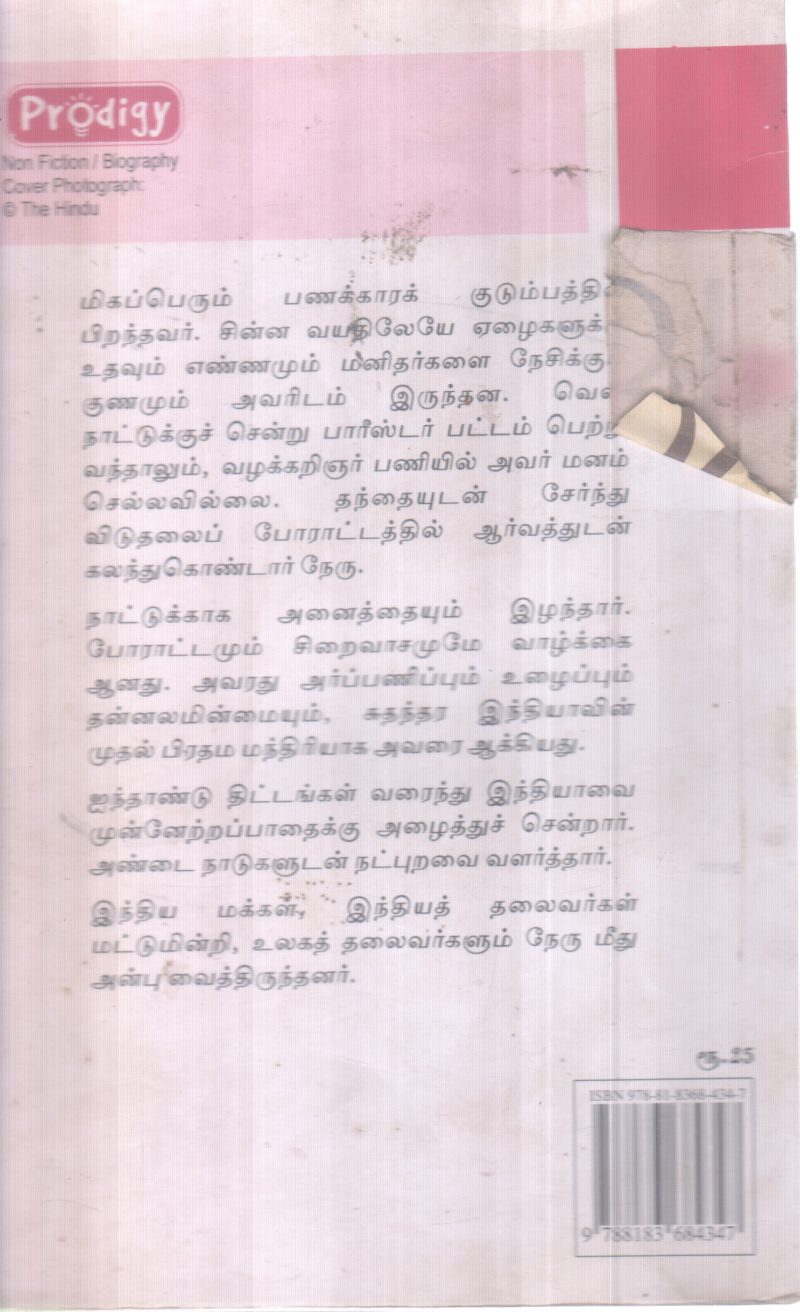 Prodigy
Non Fiction / Biography
Cover Photograph:
© The Hindu
மிகப்பெரும் பணக்காரக்
பிறந்தவர். சின்ன வயதிலேயே
உதவும் எண்ணமும் மனிதர்களை
குணமும் அவரிடம் இருந்தன.
நாட்டுக்குச் சென்று பாரீஸ்டர் பட்டம் பெற்று
வந்தாலும், வழக்கறிஞர் பணியில் அவர் மனம்
செல்லவில்லை. தந்தையுடன் சேர்ந்து
விடுதலைப் போராட்டத்தில் ஆர்வத்துடன்
கலந்துகொண்டார் நேரு.
நாட்டுக்காக அனைத்தையும் இழந்தார்.
போராட்டமும் சிறைவாசமுமே வாழ்க்கை
ஆனது. அவரது அர்ப்பணிப்பும் உழைப்பும்
தன்னலமின்மையும், சுதந்தர இந்தியாவின்
முதல் பிரதம மந்திரியாக அவரை ஆக்கியது.
ஐந்தாண்டு திட்டங்கள் வரைந்து இந்தியாவை
முன்னேற்றப்பாதைக்கு அழைத்துச் சென்றார்.
அண்டை நாடுகளுடன் நட்புறவை வளர்த்தார்.
இந்திய மக்கள், இந்தியத் தலைவர்கள்
மட்டுமின்றி, உலகத் தலைவர்களும் நேரு மீது
அன்பு வைத்திருந்தனர்.
ரூ.25
ISBN 978-81-8368-434-7
9 788183 684347